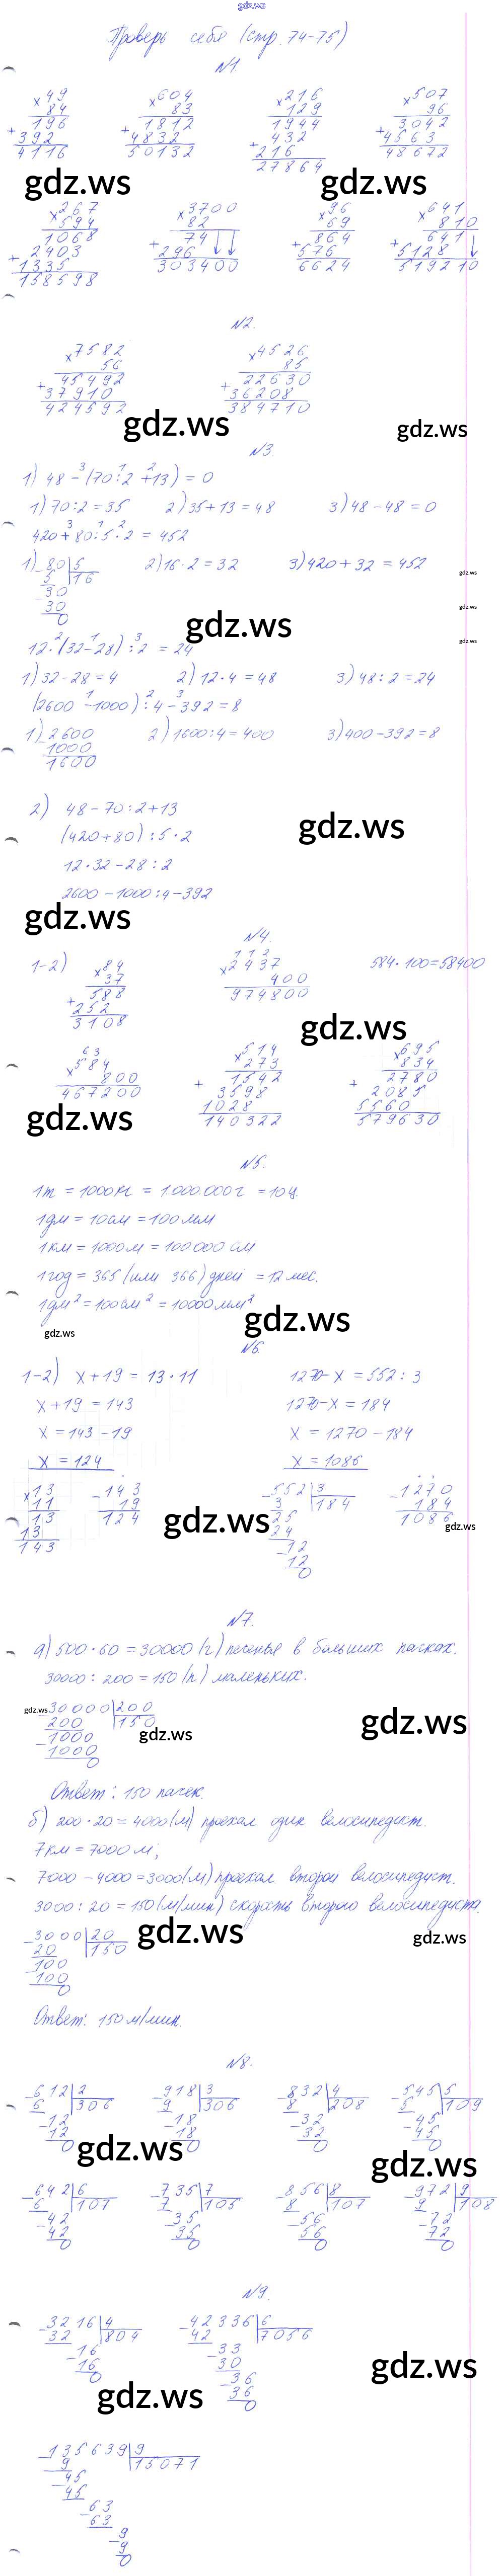 gdz.ws
Проверь себя (стр. 74-75)
№1
×49 ×604 ×216 ×507
84 83 129 96
+196 +1812 +1944 +3042
392 4832 432 4563
4116 50132 216 48672
27864
gdz.ws gdz.ws
×267 ×3700 ×96 ×641
594 82 69 810
+1068 +74 +864 +641
2403 296 576 5128
1335 303400 6624 519210
158598
№2.
×7582 ×4526
56 85
+45492 +22630
37910 36208
424592 384710
gdz.ws gdz.ws
№3
1) 48 - (70:2 + 13) = 0
1) 70:2 = 35 2) 35 + 13 = 48 3) 48 - 48 = 0
420 + 80 : 5 · 2 = 452
1) 80|5 2) 16 · 2 = 32 3) 420 + 32 = 452
5 16
30
30
0
gdz.ws
gdz.ws
gdz.ws
gdz.ws
12 · (32 - 28) : 2 = 24
1) 32 - 28 = 4 2) 12 · 4 = 48 3) 48 : 2 = 24
(2600 - 1000) : 4 - 392 = 8
1) -2600 2) 1600 : 4 = 400 3) 400 - 392 = 8
1000
1600
2) 48 - 70 : 2 + 13
gdz.ws
(420 + 80) : 5 · 2
12 · 32 - 28 : 2
2600 - 1000 : 4 - 392
gdz.ws
№4.
1-2) ×84 ×2437 584 · 100 = 58400
37 400
+588 974800
252
3108
gdz.ws
×584 ×514 ×695
800 273 834
467200 +1542 +2780
3598 2085
1028 5560
140322 579630
gdz.ws
№5.
1т = 1000кг = 1.000.000г = 10ц.
1дм = 10см = 100мм
1км = 1000м = 100000см
1год = 365 (или 366) дней = 12 мес.
1дм² = 100см² = 10000мм²
gdz.ws
gdz.ws
№6
1-2) x + 19 = 13 · 11 1270 - x = 552 : 3
x + 19 = 143 1270 - x = 184
x = 143 - 19 x = 1270 - 184
x = 124 x = 1086
×13 -143 -552|3 -1270
11 19 3 184 184
13 124 25 1086
13 24
143 12
12
0
gdz.ws gdz.ws
№7.
а) 500 · 60 = 30000 (г) печенья в больших пачках.
30000 : 200 = 150 (п) маленьких.
-30000|200
200 150
1000
1000
0
gdz.ws gdz.ws gdz.ws
Ответ: 150 пачек.
б) 200 · 20 = 4000 (м) проехал один велосипедист.
7км = 7000м;
7000 - 4000 = 3000 (м) проехал второй велосипедист.
3000 : 20 = 150 (м/мин) скорость второго велосипедиста.
-3000|20
20 150
100
100
0
gdz.ws gdz.ws
Ответ: 150 м/мин.
№8.
-612|2 -918|3 -832|4 -545|5
6 306 9 306 8 208 5 109
12 18 32 45
12 18 32 45
0 0 0 0
gdz.ws gdz.ws
-642|6 -735|7 -856|8 -972|9
6 107 7 105 8 107 9 108
42 35 56 72
42 35 56 72
0 0 0 0
№9.
-3216|4 -42336|6
32 804 42 7056
16 33
16 30
0 36
36
0
gdz.ws gdz.ws
-135639|9
9 15071
45
45
63
63
9
9
0